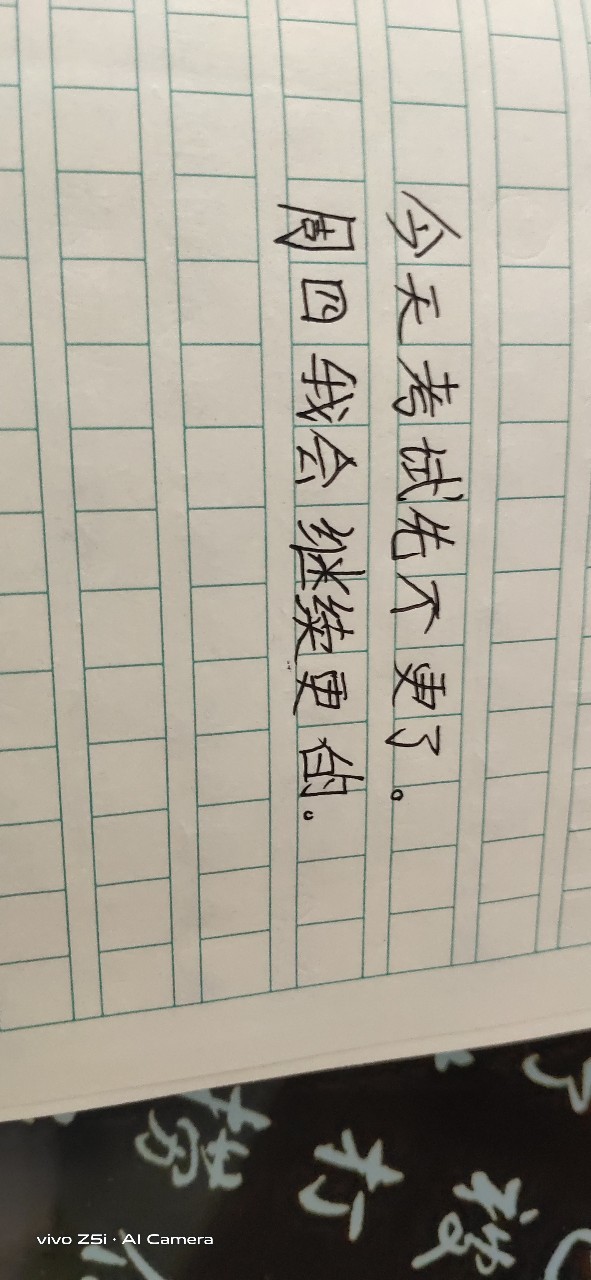 今天考试先不更了。
周四我会继续更的.。
打
vivo Z5i · AI Camera